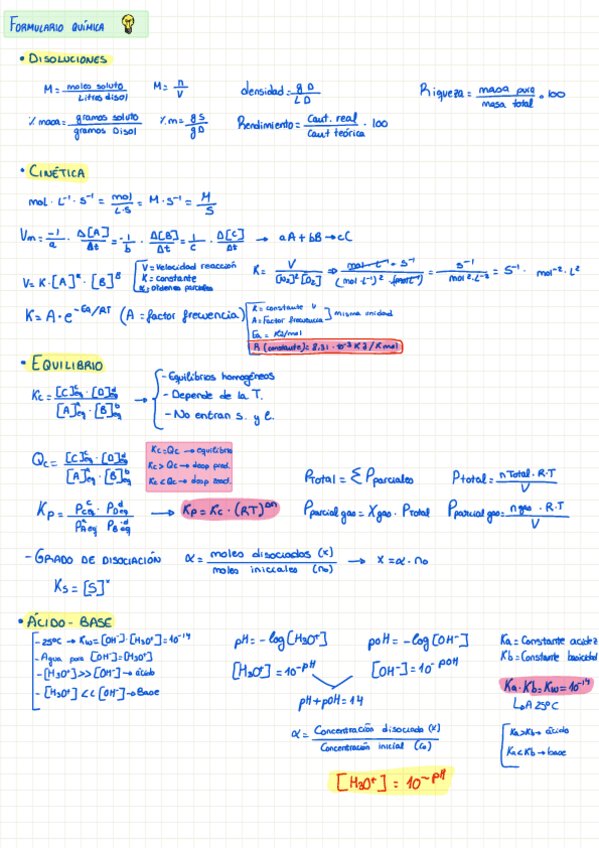 FORMULARIO QUÍMICA
• DISOLUCIONES
M = moles soluto / Litros disol
M = n / V
densidad = g D / L D
Riqueza = masa pura / masa total · 100
% masa = gramos soluto / gramos Disol
% m = g S / g D
Rendimiento = Cant. real / Cant teórica · 100
• CINÉTICA
mol · L⁻¹ · s⁻¹ = mol / L·s = M · s⁻¹ = M / S
Vm = -1/a · Δ[A]/Δt = -1/b · Δ[B]/Δt = 1/c · Δ[C]/Δt → aA + bB → cC
V = K · [A]^α · [B]^β
V = Velocidad reacción
K = constante
α = órdenes parciales
K = V / [N₂]² [O₂] ⇒ mol · L⁻¹ · s⁻¹ / (mol · L⁻¹)² · (mol L⁻¹) = s⁻¹ / mol² · L⁻² = S⁻¹ · mol⁻² · L²
K = A · e^(-Ea/RT) (A = factor frecuencia)
K = constante v
A = Factor frecuencia
] misma unidad
Ea = KJ/mol
R (constante) = 8.31 · 10⁻³ KJ/K mol
• EQUILIBRIO
Kc = [C]^c eq · [D]^d eq / [A]^a eq · [B]^b eq →
- Equilibrios homogéneos
- Depende de la T.
- No entran s. y l.
Qc = [C]^c eq · [D]^d eq / [A]^a eq · [B]^b eq
Kc = Qc → equilibrio
Kc > Qc → desp prod.
Kc < Qc → desp react.
Ptotal = Σ Pparciales
Ptotal = nTotal · R·T / V
Kp = P^c C eq · P^d D eq / P^a A eq · P^b B eq → Kp = Kc · (RT)^Δn
Pparcial gas = Xgas · Ptotal
Pparcial gas = ngas · R·T / V
- GRADO DE DISOCIACIÓN α = moles disociados (x) / moles iniciales (n₀) → x = α · n₀
Ks = [S]^x
• ÁCIDO - BASE
- 25ºC → Kw = [OH⁻] · [H₃O⁺] = 10⁻¹⁴
- Agua pura [OH⁻] = [H₃O⁺]
- [H₃O⁺] >> [OH⁻] → ácido
- [H₃O⁺] << [OH⁻] → Base
pH = - log [H₃O⁺]
pOH = - log [OH⁻]
Ka = Constante acidez
Kb = Constante basicidad
[H₃O⁺] = 10^-pH
[OH⁻] = 10^-pOH
Ka · Kb = Kw = 10⁻¹⁴
↳ A 25ºC
pH + pOH = 14
α = Concentración disociada (x) / Concentración inicial (c₀)
Ka > Kb → ácido
Ka < Kb → base
[H₃O⁺] = 10^-pH